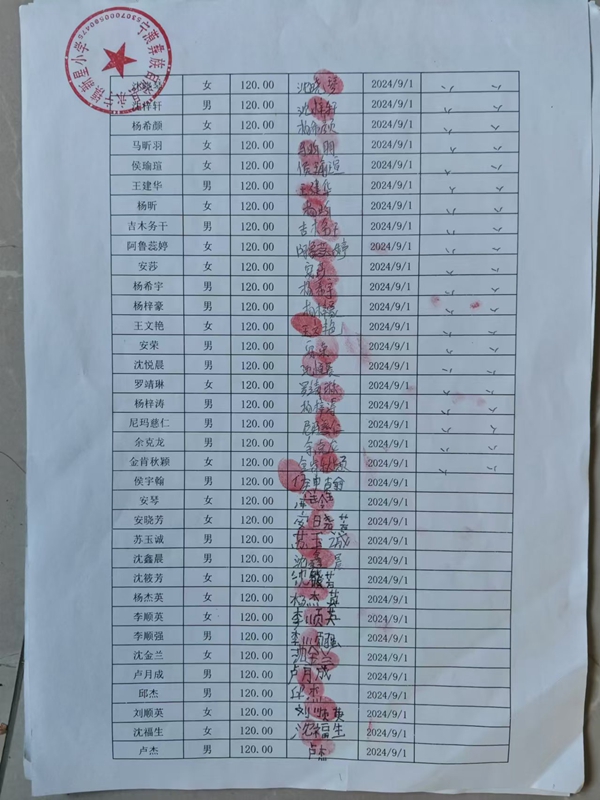 女 120.00 2024/9/1 六 六
沈梓轩 男 120.00 沈梓轩 2024/9/1
杨希颜 女 120.00 2024/9/1 六 六
马昕羽 女 120.00 2024/9/1
侯瑜瑄 女 120.00 侯瑜瑄 2024/9/1
王建华 男 120.00 王建华 2024/9/1
杨昕 女 120.00 杨昕 2024/9/1
吉木务干 男 120.00 吉木务干 2024/9/1
阿鲁蕊婷 女 120.00 阿鲁蕊婷 2024/9/1
安莎 女 120.00 安莎 2024/9/1
杨希宇 男 120.00 杨希宇 2024/9/1
杨梓豪 男 120.00 杨梓豪 2024/9/1
王文艳 女 120.00 王文艳 2024/9/1
安荣 男 120.00 安荣 2024/9/1
沈悦晨 男 120.00 沈悦晨 2024/9/1
罗靖琳 女 120.00 罗靖琳 2024/9/1
杨梓涛 男 120.00 杨梓涛 2024/9/1
尼玛慈仁 男 120.00 2024/9/1
余克龙 男 120.00 余克龙 2024/9/1
金肯秋颖 女 120.00 2024/9/1
侯宇翰 男 120.00 2024/9/1
安琴 女 120.00 2024/9/1
安晓芳 女 120.00 安晓芳 2024/9/1
苏玉诚 男 120.00 苏玉诚 2024/9/1
沈鑫晨 男 120.00 沈鑫晨 2024/9/1
沈筱芳 女 120.00 沈筱芳 2024/9/1
杨杰英 女 120.00 杨杰英 2024/9/1
李顺英 女 120.00 李顺英 2024/9/1
李顺强 男 120.00 李顺强 2024/9/1
沈金兰 女 120.00 沈金兰 2024/9/1
卢月成 男 120.00 卢月成 2024/9/1
邱杰 男 120.00 邱杰 2024/9/1
刘顺英 女 120.00 刘顺英 2024/9/1
沈福生 女 120.00 沈福生 2024/9/1
卢杰 男 120.00 卢杰 2024/9/1